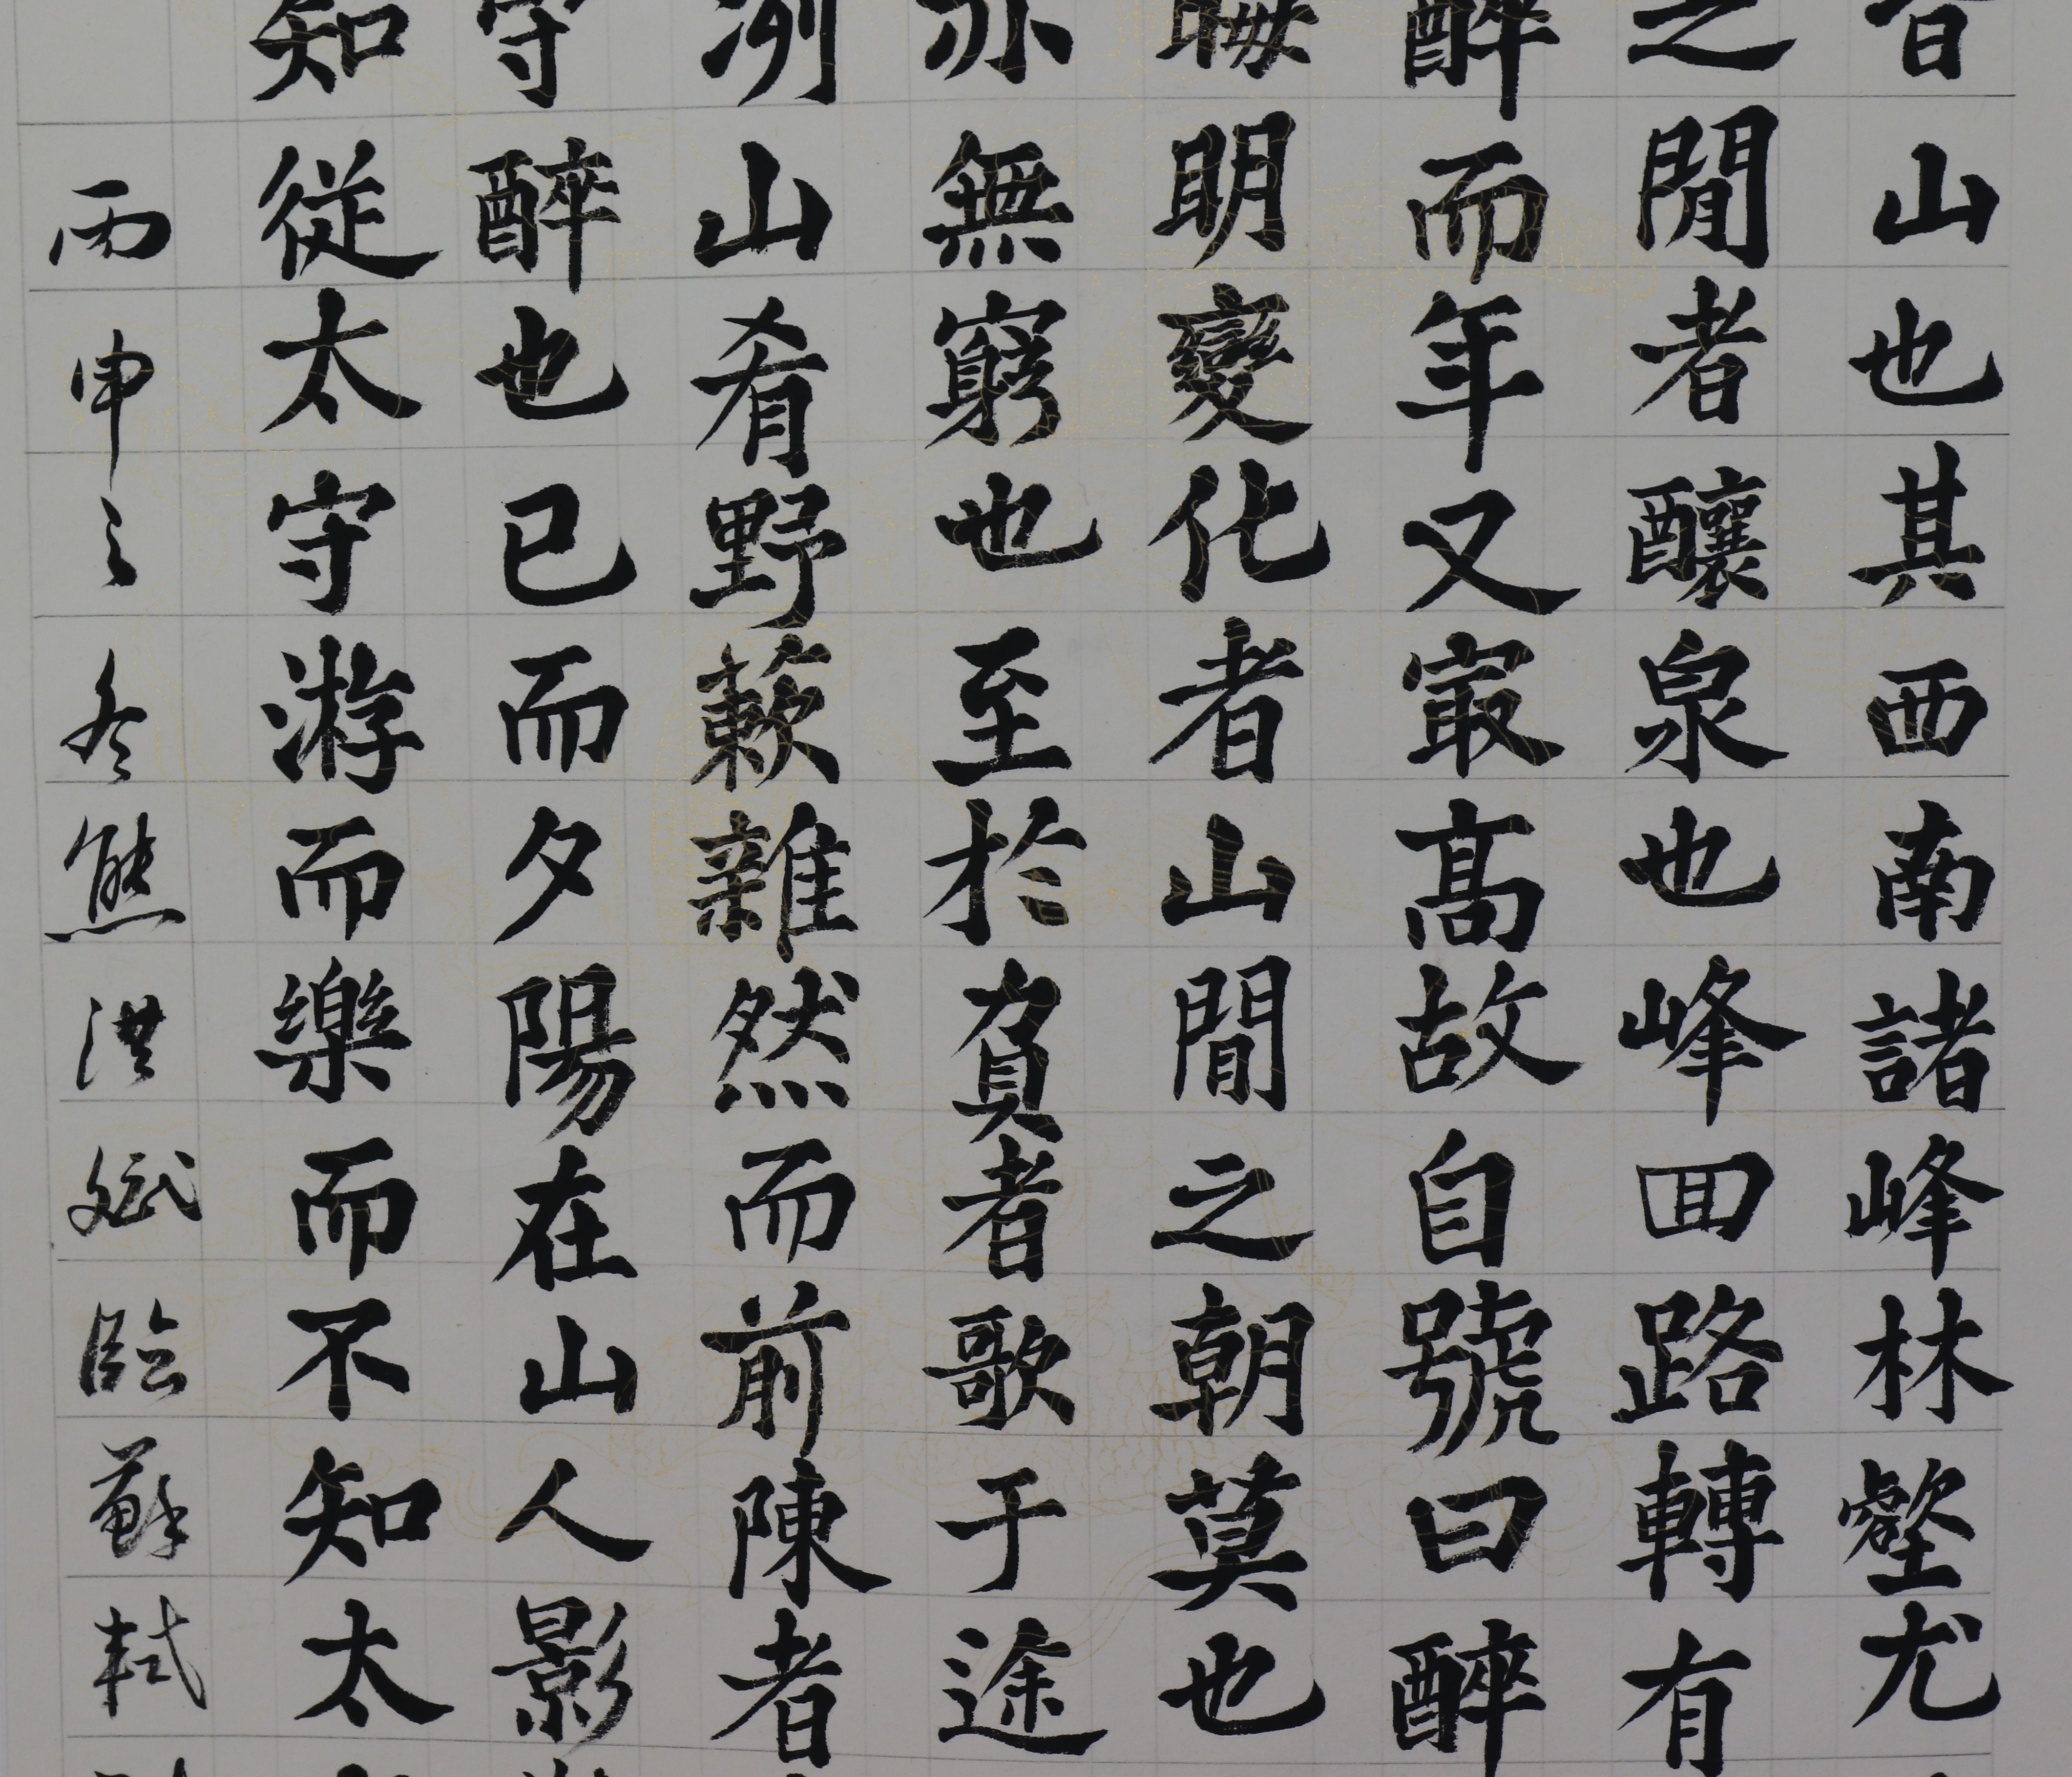 皆山也其西南諸峰林壑尤
之間者釀泉也峰回路轉有
醉而年又冣高故自號曰醉
晦明變化者山間之朝莫也
亦無窮也至於負者歌于途
洌山肴野蔌雜然而前陳者
守醉也已而夕陽在山人影
知從太守游而樂而不知太
丙申之冬熊洪斌臨蘇軾